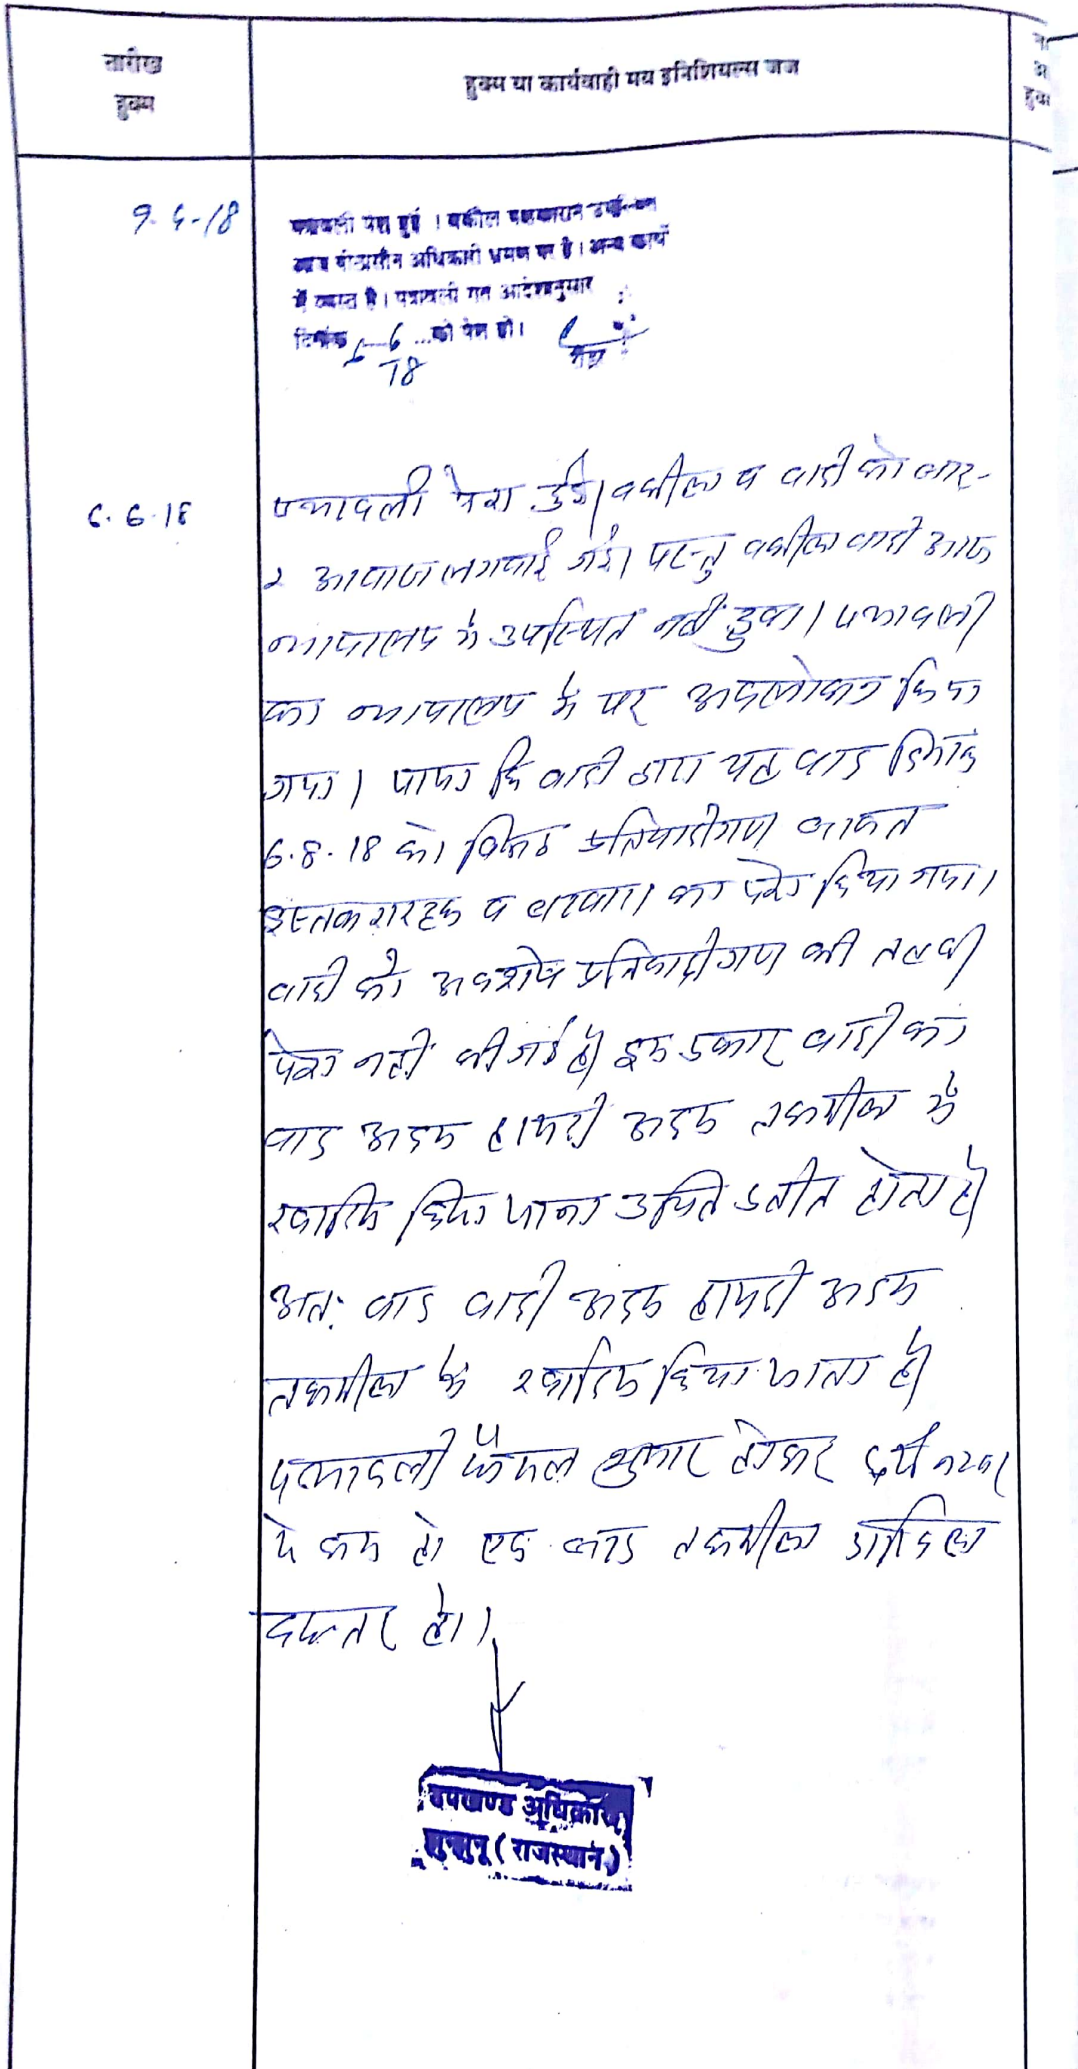 तारीख
हुक्म
हुक्म या कार्यवाही मय इनिशियल्स जज
हुक्म
9-5-18
पत्रावली पेश हुई । वकील पक्षकारान उप०
आज पीठासीन अधिकारी भ्रमण पर है। अन्य कार्य
में व्यस्त है। पत्रावली गत आदेशानुसार
दिनांक 6-6-18 ...को पेश हो।
6.6.18
पत्रावली पेश हुई। वकील व वादी को बार-
२ आवाज लगवाई गई। परन्तु वकील वादी आज
न्यायालय मे उपस्थित नहीं हुवा। पत्रावली
का न्यायालय मे पर अवलोकन किया
गया। पाया कि वादी द्वारा यह वाद दिनांक
6.8.18 को विरूद्ध प्रतिवादीगण बाबत
इस्तकरारहक व बटवारा का पेश किया गया।
वादी को अवशेष प्रतिवादीगण की तलबी
पेश नहीं की गई है। इस प्रकार वादी का
वाद अदम हाजरी अदम तकमील मे
खारिज किया जाना उचित प्रतीत होता है।
अत: वाद वादी अदम हाजरी अदम
तकमील मे खारिज किया जाता है।
पत्रावली फैसल शुमार होकर नम्बर
से कम हो एवं बाद तकमील दाखिल
दफ्तर हो।
उपखण्ड अधिकारी
झुन्झुनू (राजस्थान)